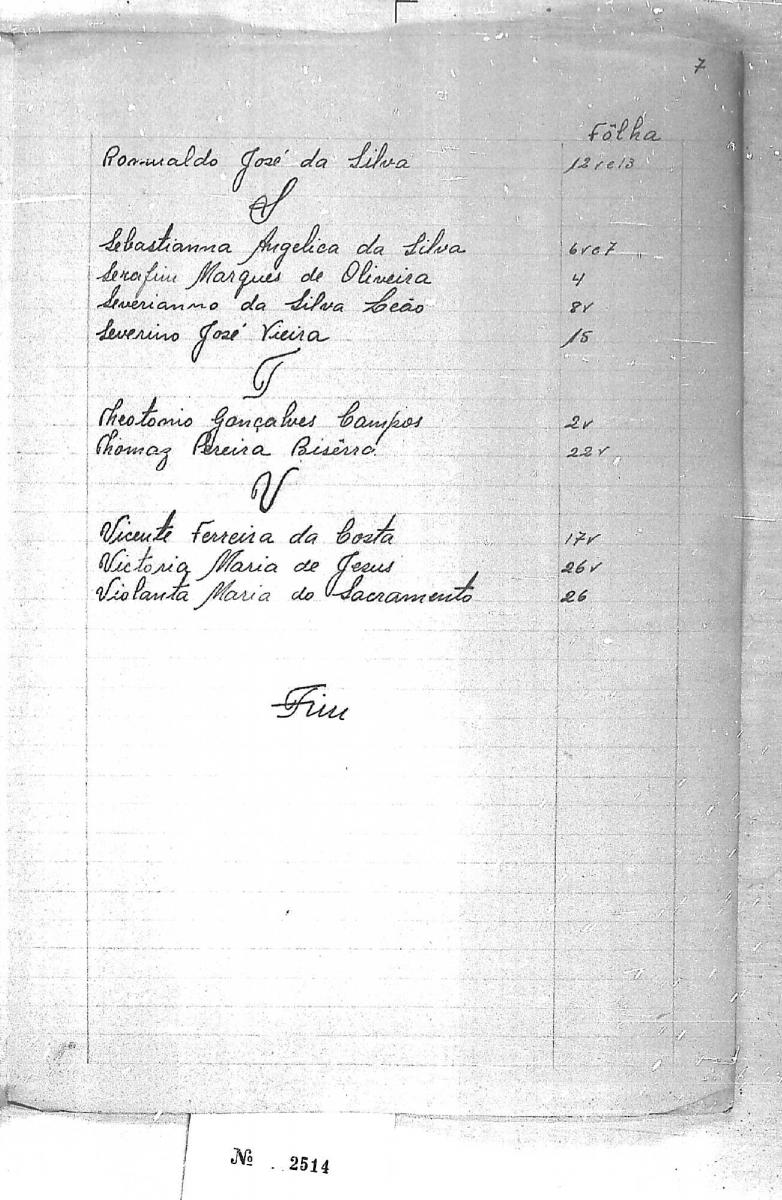 7
Fôlha
Romualdo José da Silva 12 v e 13
S
Sebastianna Angelica da Silva 6 v e 7
Serafim Marques de Oliveira 4
Severianno da Silva Leão 8v
Severino José Vieira 15
T
Theotonio Gonçalves Campos 2v
Thomaz Pereira Bisêrra 22v
V
Vicente Ferreira da Costa 17v
Victoria Maria de Jesus 26v
Violanta Maria do Sacramento 26
Fim
Nº 2514